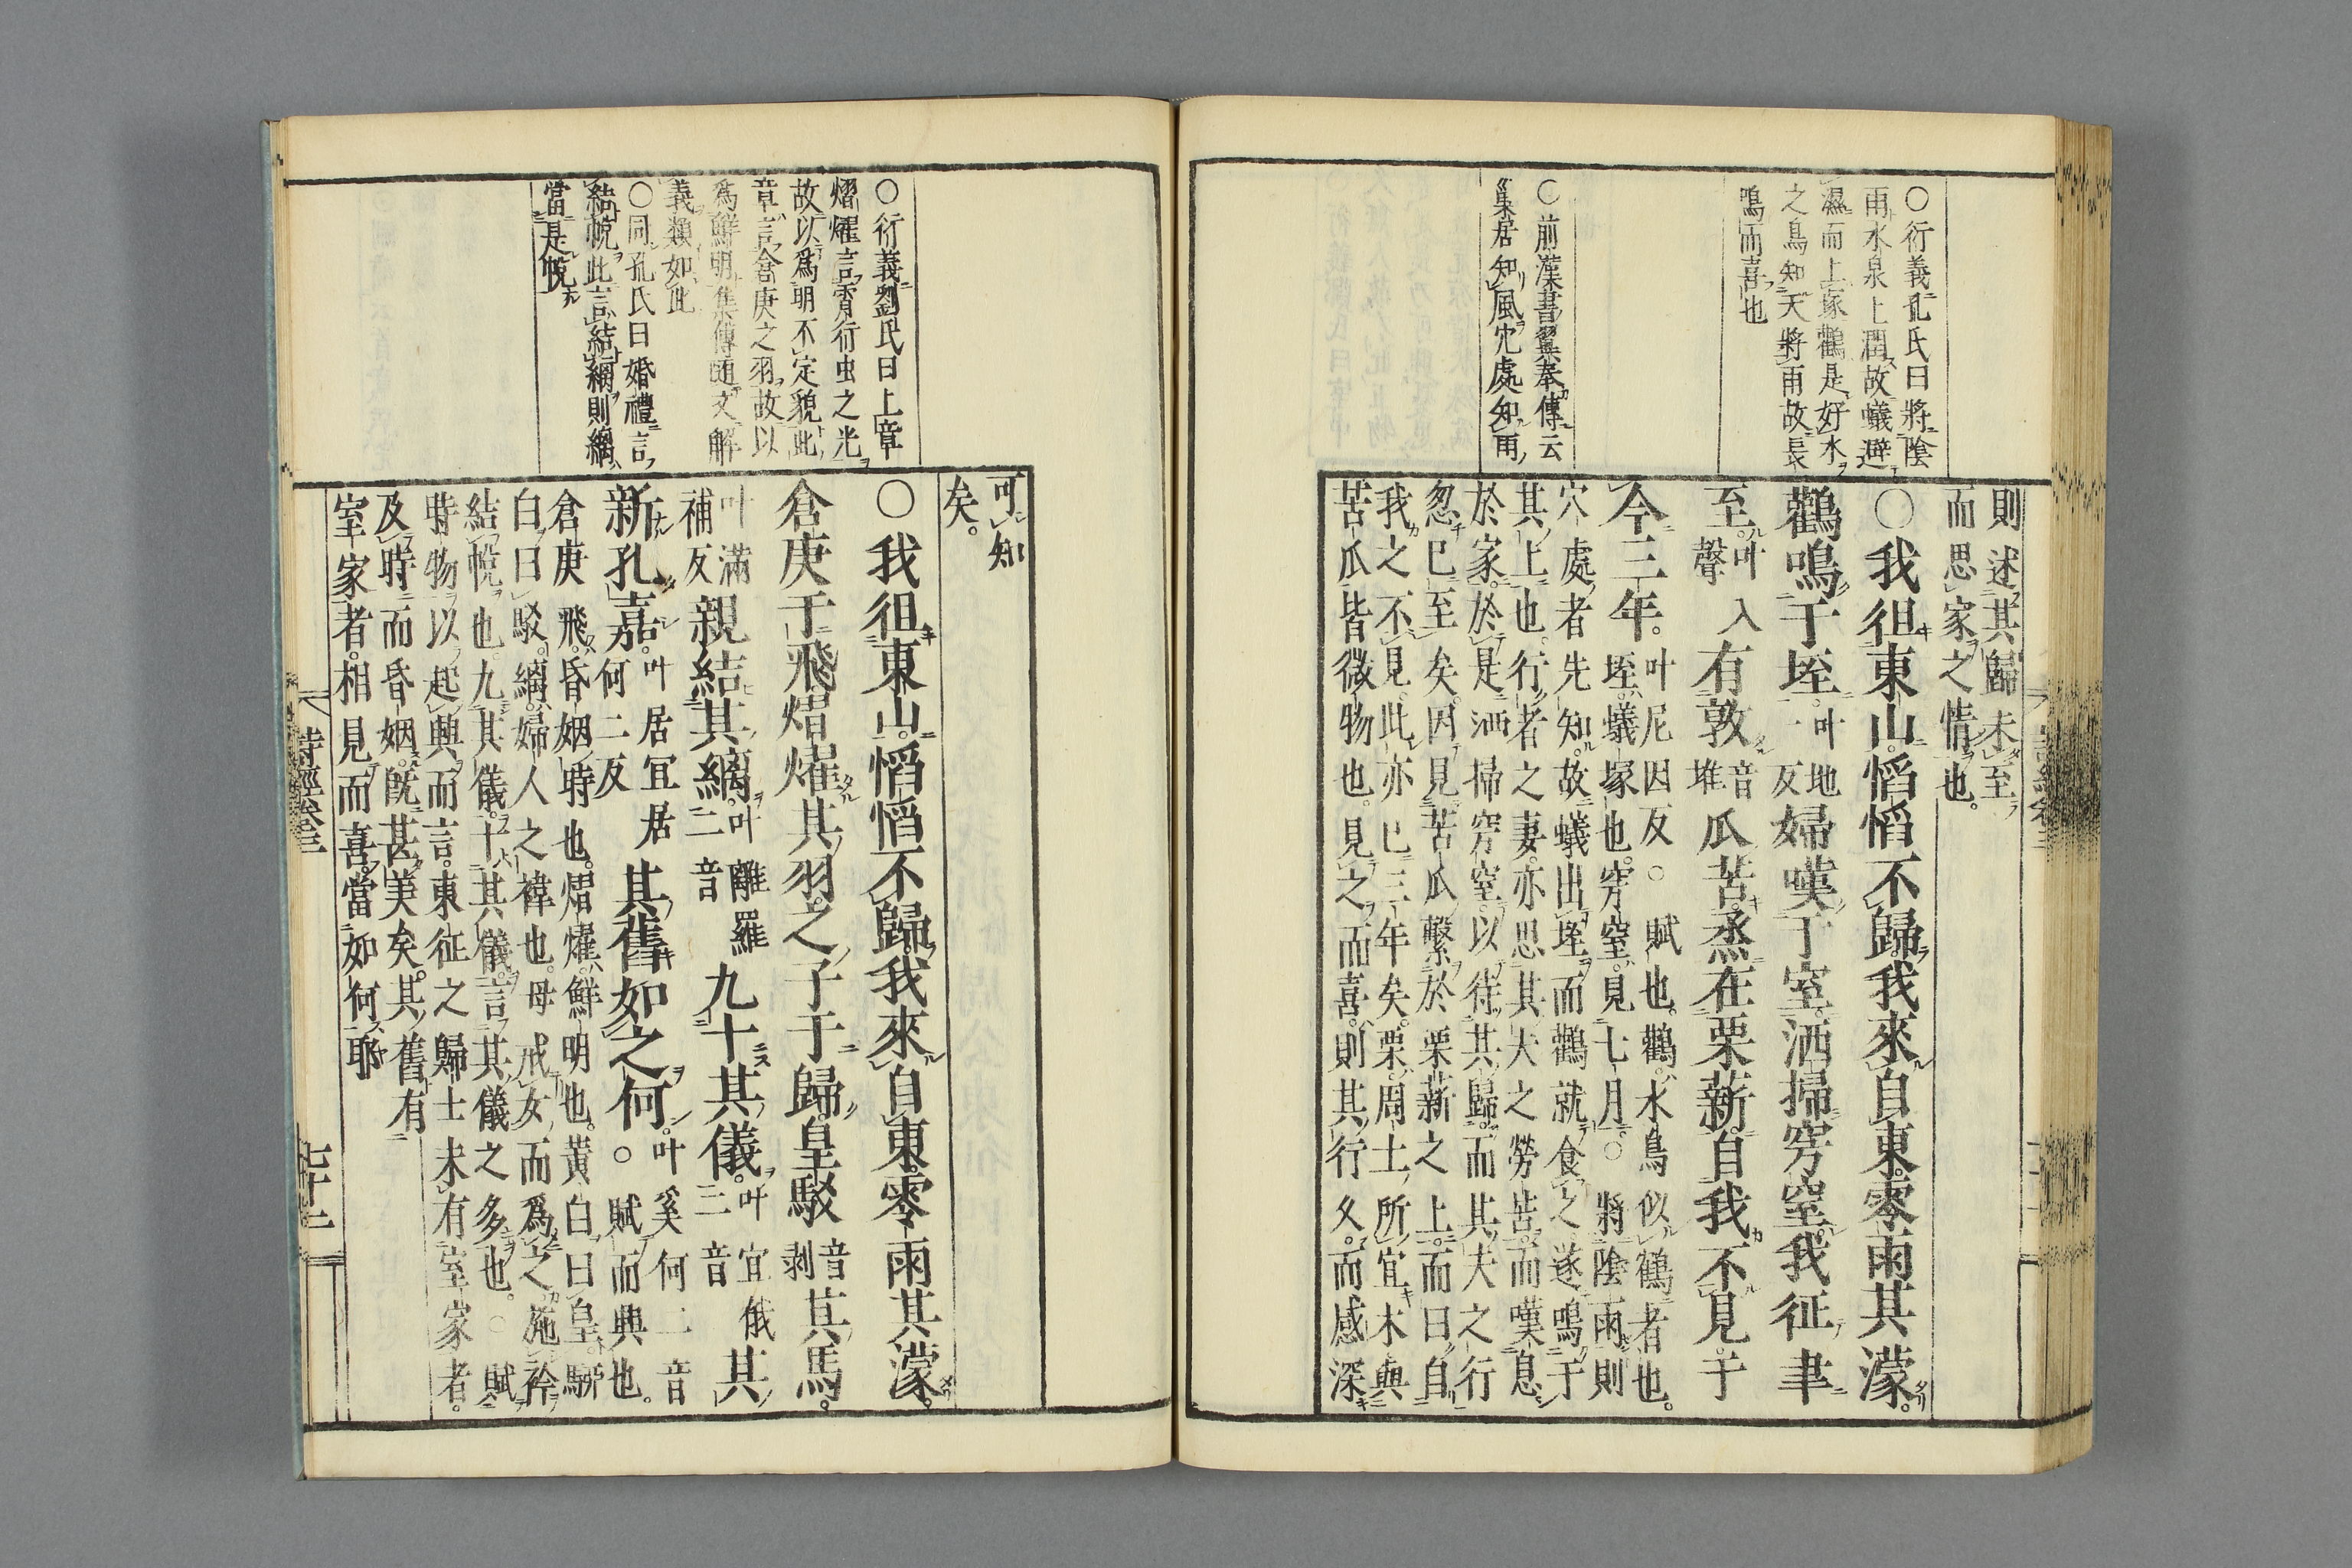 ○衍義孔氏曰將陰
雨水泉上潤故蟻避
濕而上塚鸛是好水
之鳥知天將雨故長
鳴而喜也
○前漢書翼奉傳云
巢居知風穴處知雨
則述其歸未至
而思家之情也。
○我徂東山。慆慆不歸。我來自東。零雨其濛。
鸛鳴于垤。叶地一反婦嘆于室。洒掃穹窒。我征聿
至。叶入聲有敦音堆瓜苦。烝在栗薪。自我不見。于
今三年。叶尼因反。○賦也。鸛。水鳥似鶴者也。
垤。蟻塚也。穹窒。見七月。○將陰雨。則
穴處者先知。故蟻出垤。而鸛就食之。遂鳴于
其上也。行者之妻。亦思其夫之勞苦。而嘆息
於家。於是洒掃穹窒。以待其歸。而其夫之行
忽已至矣。因見苦瓜繫於栗薪之上。而曰。自
我之不見此。亦已三年矣。栗。周土所宜木。與
苦瓜皆微物也。見之而喜。則其行久。而感深
○衍義劉氏曰上章
熠燿言宵行虫之光
故以爲明不定貌此
章言倉庚之羽故以
爲鮮明集傳隨文解
義類如此
○同孔氏曰婚禮言
結帨此言結縭則縭
當是帨
可知
矣。
○我徂東山。慆慆不歸。我來自東。零雨其濛。
倉庚于飛。熠燿其羽。之子于歸。皇駁音剥其馬。
叶滿補反親結其縭。叶離羅二音九十其儀。叶宜俄三音其
新孔嘉。叶居宜居何二反其舊如之何。叶奚何二音○賦而興也。
倉庚飛。昏姻時也。熠燿。鮮明也。黃白曰皇。駵
白曰駁。縭。婦人之褘也。母戒女。而爲之施衿
結帨也。九其儀。十其儀。言其儀之多也。○賦
時物以起興。而言。東征之歸士。未有室家者。
及時而昏姻。既甚美矣。其舊有
室家者。相見而喜。當如何耶
詩經卷三
七十二